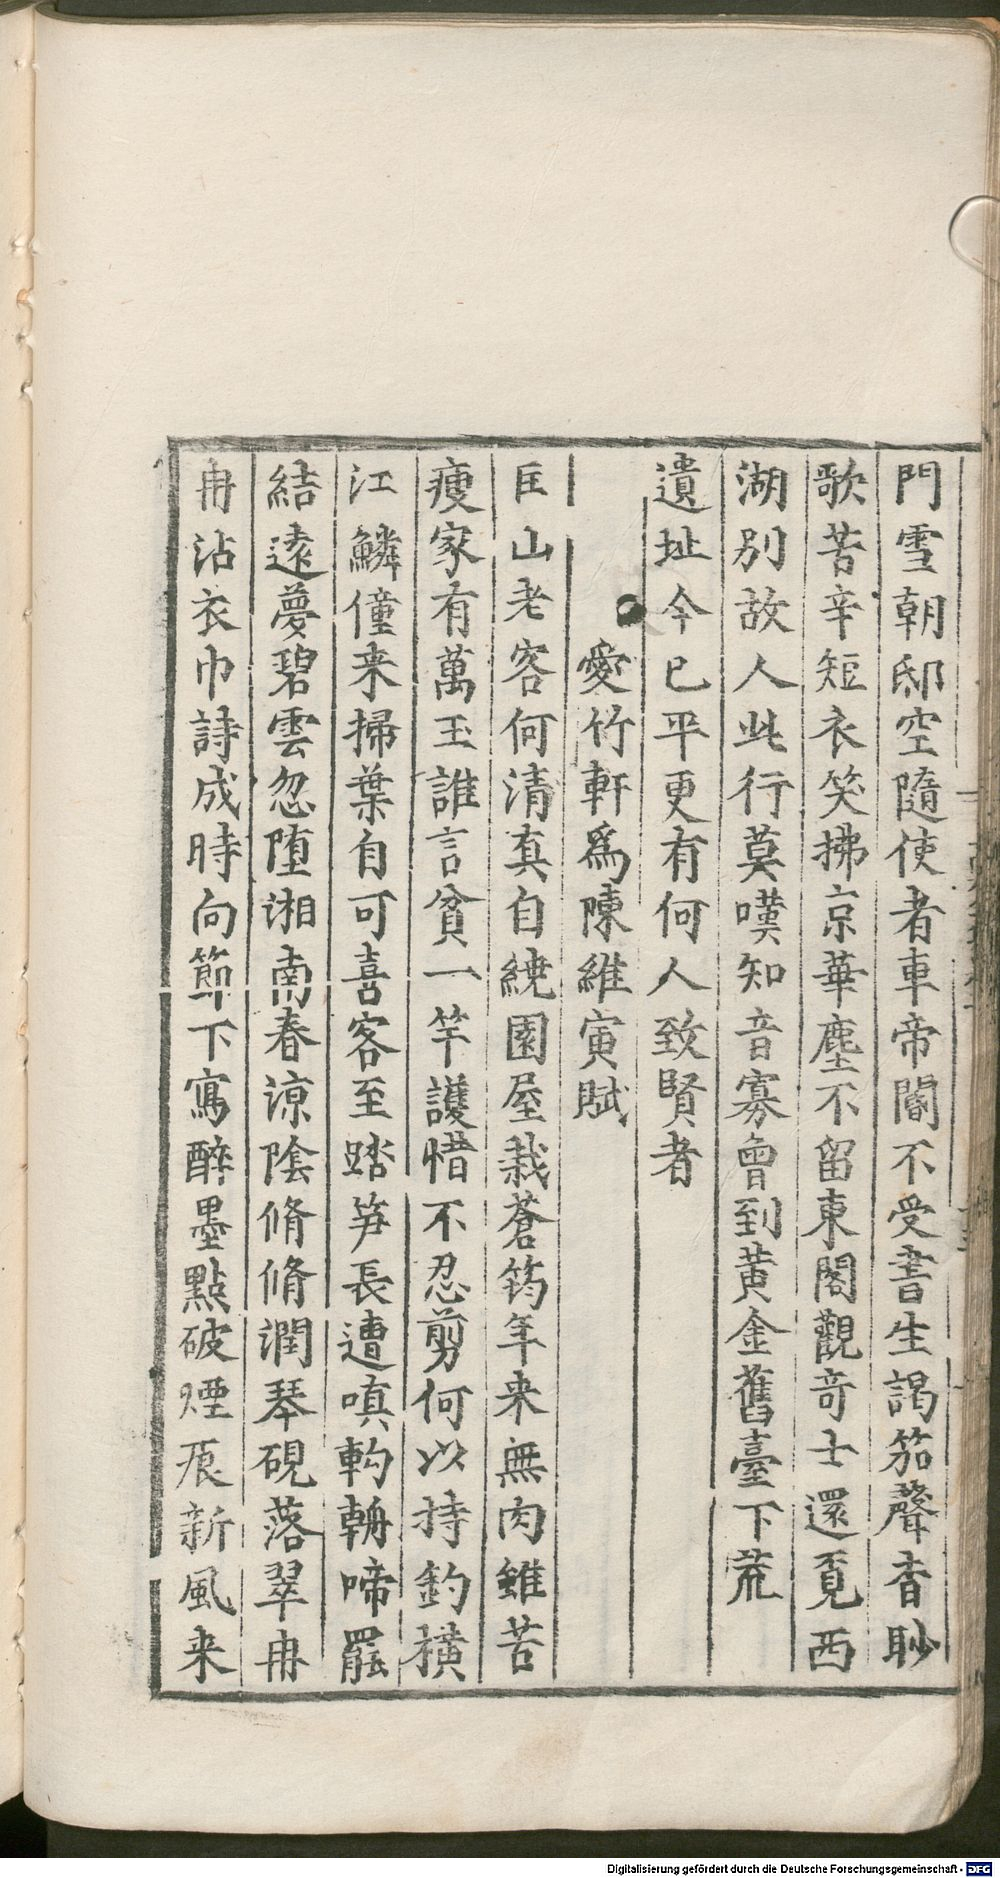 門雪朝邸空隨使者車帝閽不受書生謁笳聲杳眇
歌苦辛短衣笑拂京華塵不留東閣觀奇士還覓西
湖別故人此行莫嘆知音寡曾到黃金舊臺下荒
遺址今已平更有何人致賢者
愛竹軒爲陳維寅賦
匡山老客何清真自繞園屋栽蒼筠年来無肉雖苦
瘦家有萬玉誰言貧一竿護惜不忍剪何以持釣橫
江鱗僮来掃葉自可喜客至踏笋長遭嗔軥輈啼罷
結遠夢碧雲忽墮湘南春涼陰脩脩潤琴硯落翠冉
冉沾衣巾詩成時向節下寫醉墨點破煙痕新風来
Digitalisierung gefördert durch die Deutsche Forschungsgemeinschaft - DFG